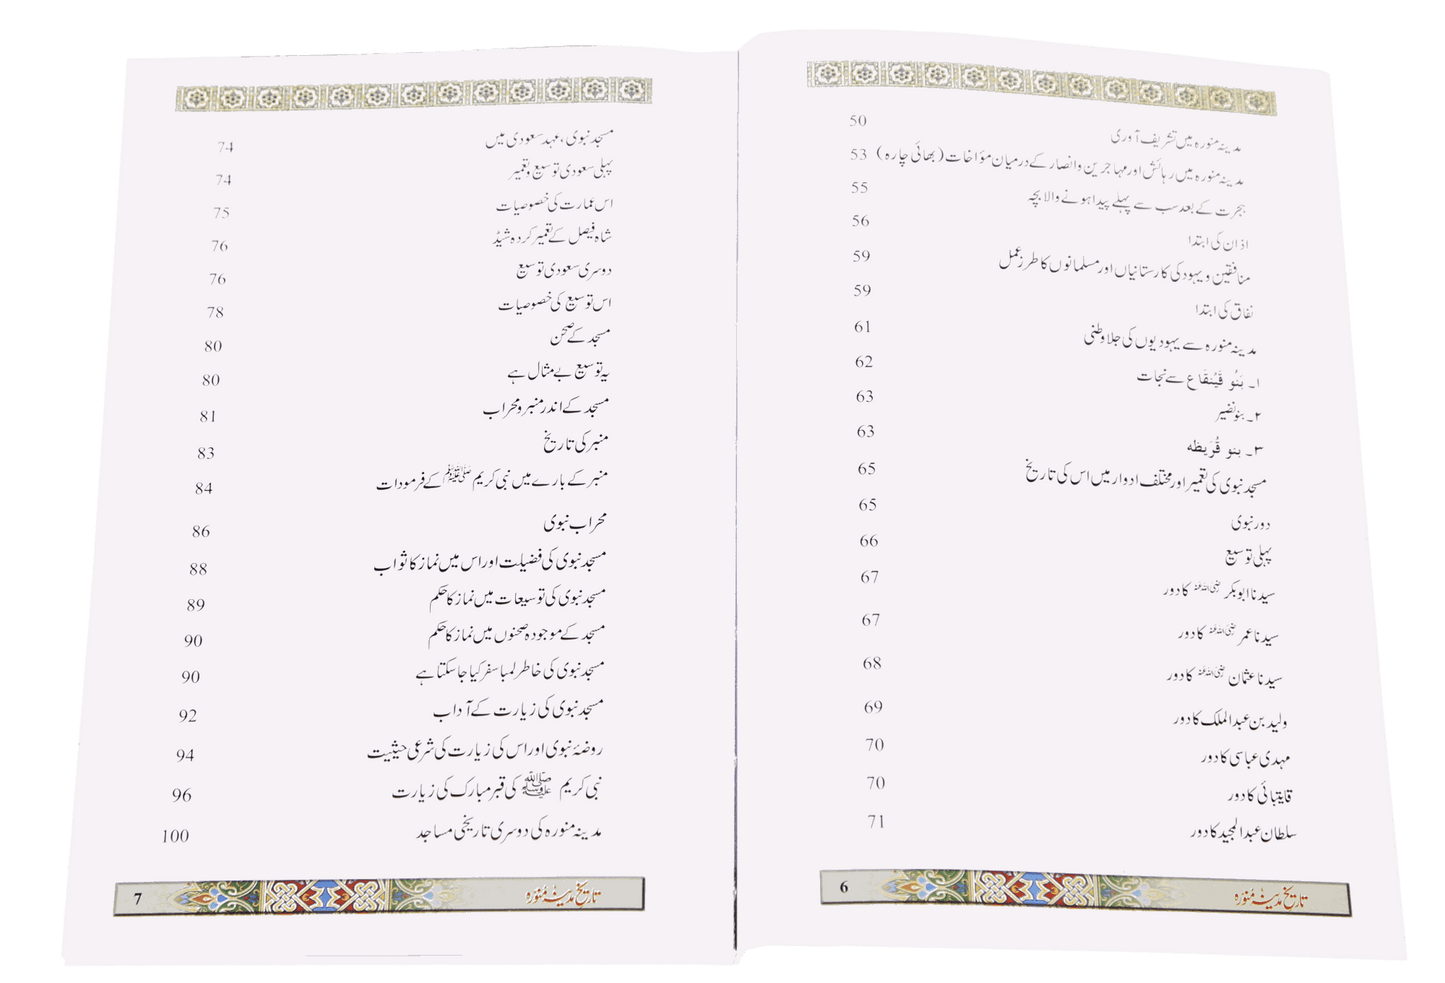 مدینہ منورہ میں تشریف آوری 50
مدینہ منورہ میں رہائش اور مہاجرین و انصار کے درمیان مؤاخات (بھائی چارہ) 53
ہجرت کے بعد سب سے پہلے پیدا ہونے والا بچہ 55
اذان کی ابتدا 56
منافقین و یہود کی کارستانیاں اور مسلمانوں کا طرز عمل 59
نفاق کی ابتدا 59
مدینہ منورہ سے یہودیوں کی جلاوطنی 61
۱۔ بَنُو قَيْنُقَاع سے نجات 62
۲۔ بنو نضیر 63
۳۔ بنو قُرَيظه 63
مسجد نبوی کی تعمیر اور مختلف ادوار میں اس کی تاریخ 65
دور نبوی 65
پہلی توسیع 66
سیدنا ابوبکر رضی اللہ عنہ کا دور 67
سیدنا عمر رضی اللہ عنہ کا دور 67
سیدنا عثمان رضی اللہ عنہ کا دور 68
ولید بن عبد الملک کا دور 69
مہدی عباسی کا دور 70
قایتبائی کا دور 70
سلطان عبد المجید کا دور 71
تاریخ مدینہ منورہ 6
مسجد نبوی، عہد سعودی میں 74
پہلی سعودی توسیع و تعمیر 74
اس عمارت کی خصوصیات 75
شاہ فیصل کے تعمیر کردہ شیڈ 76
دوسری سعودی توسیع 76
اس توسیع کی خصوصیات 78
مسجد کے صحن 80
یہ توسیع بے مثال ہے 80
مسجد کے اندر منبر و محراب 81
منبر کی تاریخ 83
منبر کے بارے میں نبی کریم ﷺ کے فرمودات 84
محراب نبوی 86
مسجد نبوی کی فضیلت اور اس میں نماز کا ثواب 88
مسجد نبوی کی توسیعات میں نماز کا حکم 89
مسجد کے موجودہ صحنوں میں نماز کا حکم 90
مسجد نبوی کی خاطر لمبا سفر کیا جا سکتا ہے 90
مسجد نبوی کی زیارت کے آداب 92
روضۂ نبوی اور اس کی زیارت کی شرعی حیثیت 94
نبی کریم ﷺ کی قبر مبارک کی زیارت 96
مدینہ منورہ کی دوسری تاریخی مساجد 100
تاریخ مدینہ منورہ 7